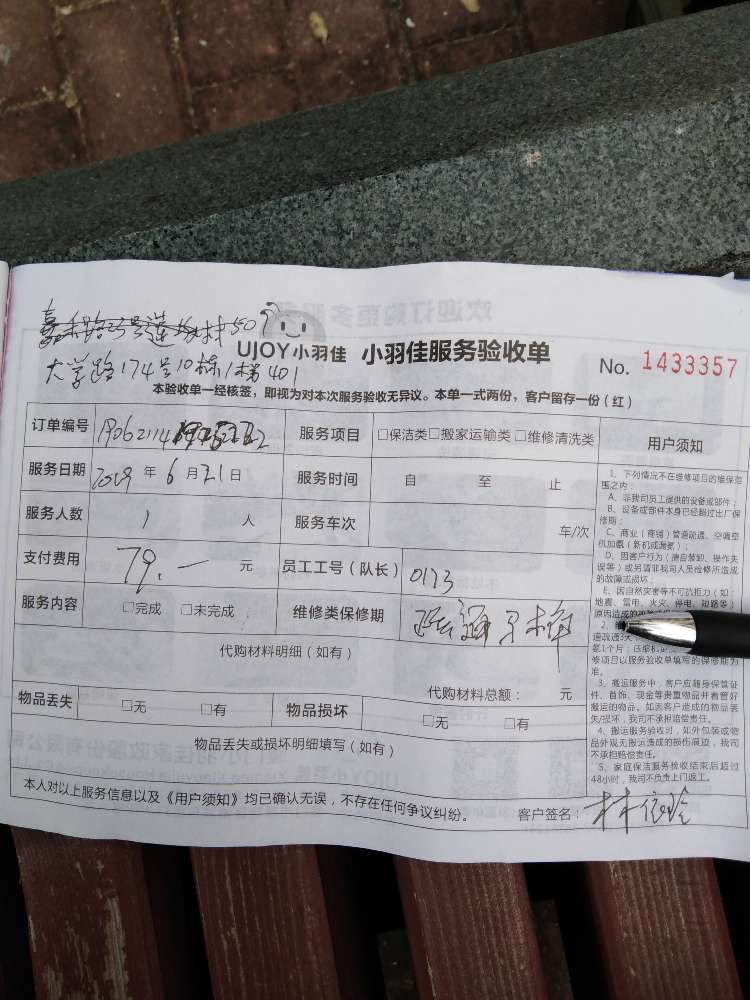 大学路174号10栋1梯401
UJOY小羽佳 小羽佳服务验收单
No. 1433357
本验收单一经核签，即视为对本次服务验收无异议。本单一式两份，客户留存一份（红）
订单编号 19062114
服务项目 □保洁类□搬家运输类□维修清洗类
服务日期 2019 年 6 月 21 日
服务时间 自 至 止
服务人数 1 人
服务车次 车/次
支付费用 79.一 元
员工工号（队长） 0173
服务内容 □完成 □未完成
维修类保修期
代购材料明细（如有）
代购材料总额： 元
物品丢失 □无 □有
物品损坏 □无 □有
物品丢失或损坏明细填写（如有）
本人对以上服务信息以及《用户须知》均已确认无误，不存在任何争议纠纷。
客户签名：
用户须知
1、下列情况不在维修项目的维保范
围之内：
A、非我司员工提供的设备或部件；
B、设备或部件本身已经超过出厂保
修期；
C、商业（商铺）管道疏通、空调空
机加氨（新机或漏氨）；
D、因客户行为（擅自装卸、操作失
误等）或另请非我司人员检修所造成
的故障或损坏；
E、因自然灾害等不可抗拒力（如：
地震、雷电、火灾、停电、短路等）
2、
修项目以服务验收单填写的保修期为
准。
3、搬运服务中，客户应随身保管证
件、首饰、现金等贵重物品并看管好
搬运的物品。如因客户造成的物品丢
失/损坏，我司不承担赔偿责任。
4、搬运服务验收时，如外包装或物
品外观无搬运造成的损伤痕迹，我司
不承担赔偿责任。
5、家庭保洁服务验收结束后超过
48小时，我司不负责上门返工。